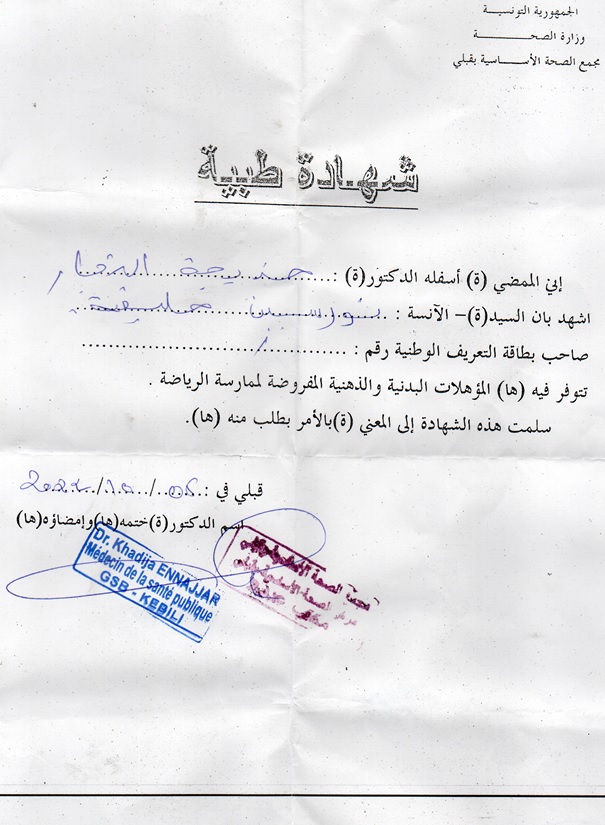 الجمهورية التونسية
وزارة الصحة
مجمع الصحة الأساسية بقبلي
شهادة طبية
إني الممضي (ة) أسفله الدكتور(ة) : خديجة النجار
اشهد بان السيد(ة)– الآنسة :
صاحب بطاقة التعريف الوطنية رقم :
تتوفر فيه (ها) المؤهلات البدنية والذهنية المفروضة لممارسة الرياضة .
سلمت هذه الشهادة إلى المعني (ة)بالأمر بطلب منه (ها).
قبلي في :
اسم الدكتور(ة)ختمه(ها)وإمضاؤه(ها)
Dr. Khadija ENNAJJAR
Médecin de la santé publique
GSB - KEBILI